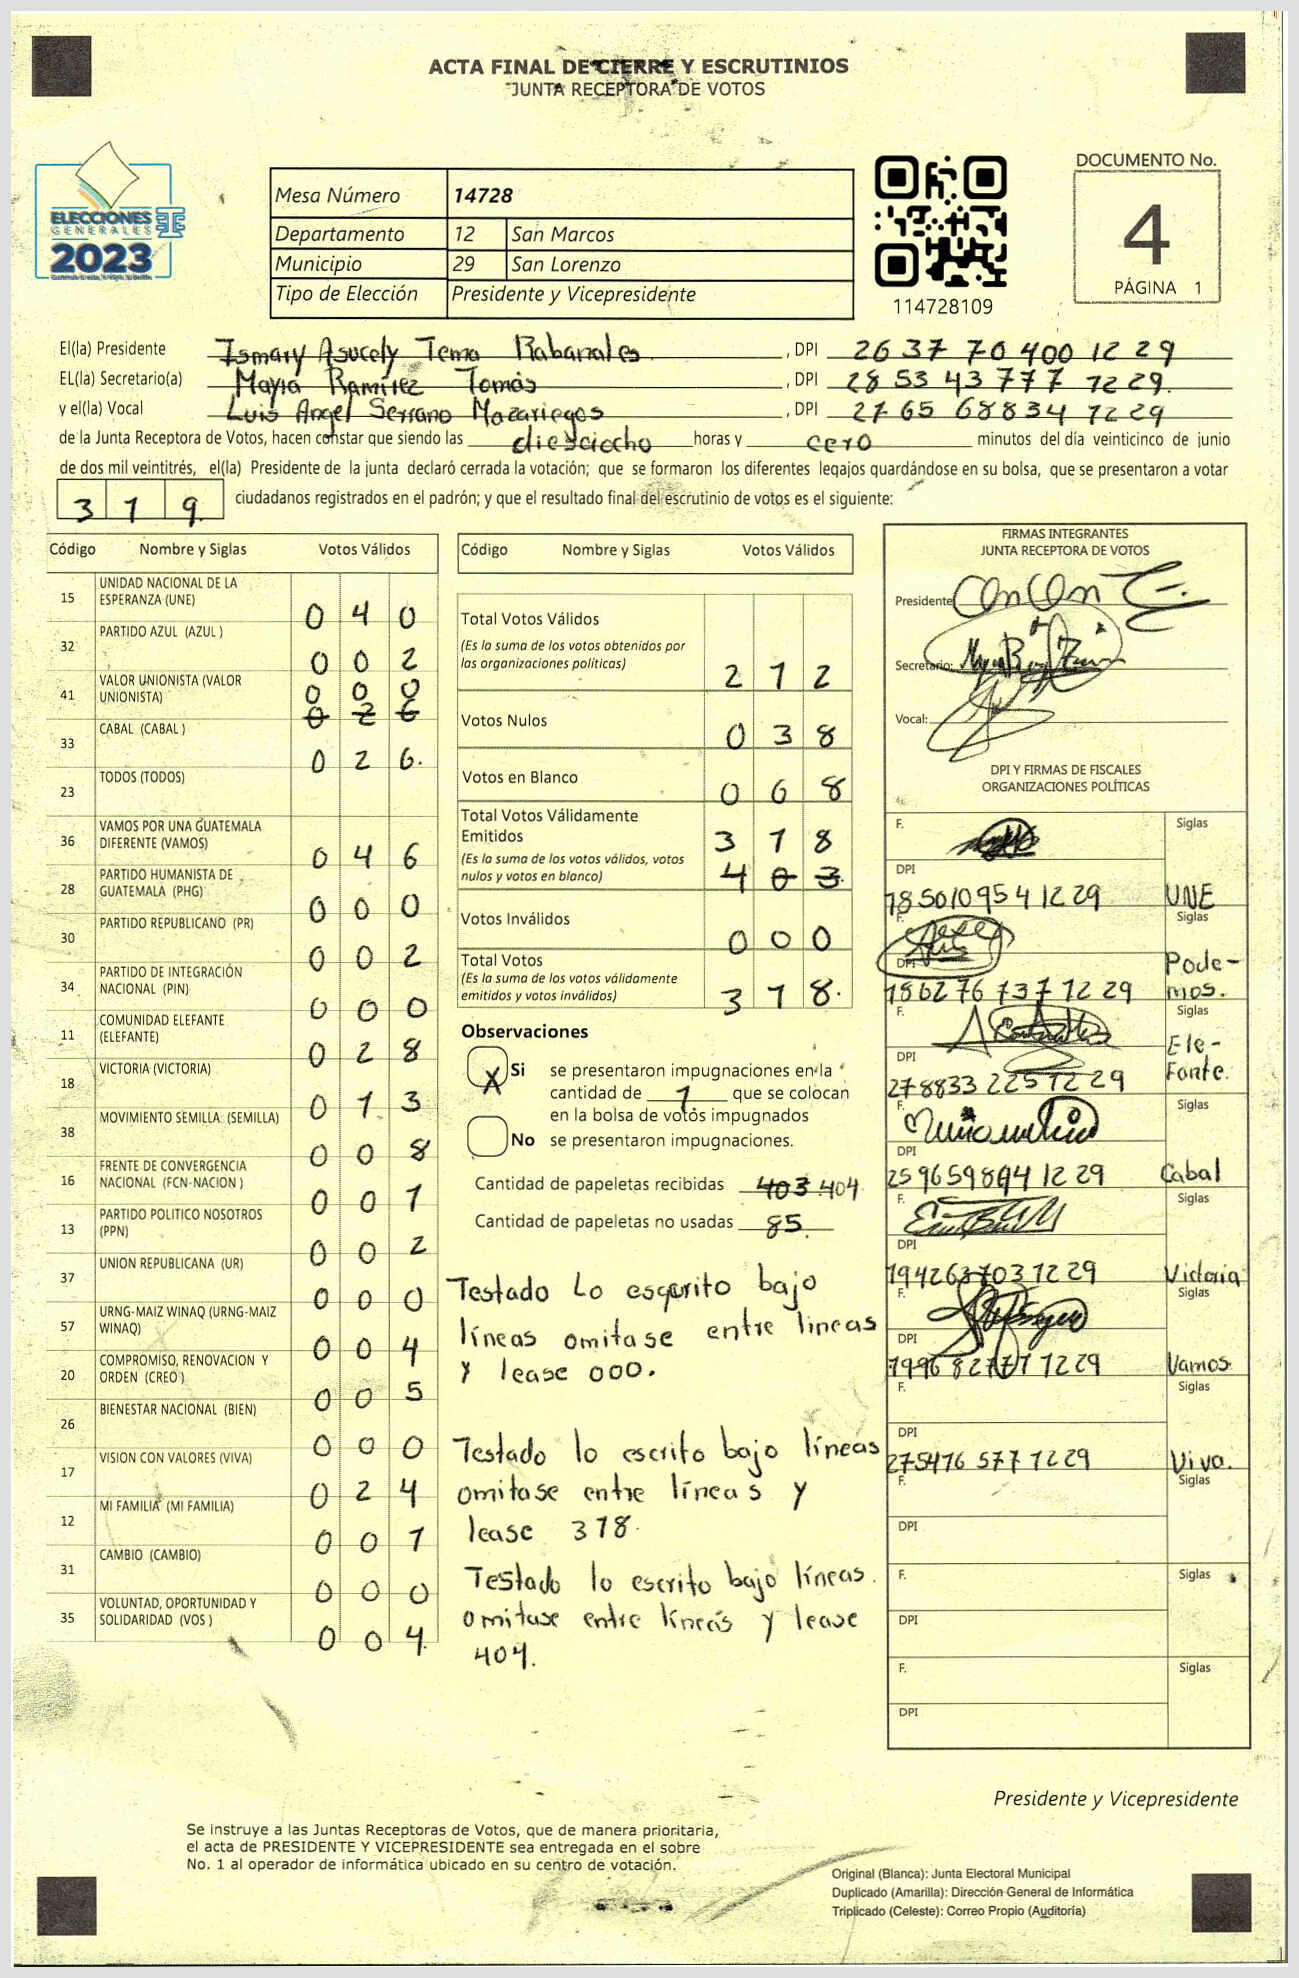 ACTA FINAL DE CIERRE Y ESCRUTINIOS
JUNTA RECEPTORA DE VOTOS
ELECCIONES
GENERALES
2023
Mesa Número 14728
Departamento 12 San Marcos
Municipio 29 San Lorenzo
Tipo de Elección Presidente y Vicepresidente
114728109
DOCUMENTO No.
4
PÁGINA 1
El(la) Presidente Ismary Asucely Tema Rabanales , DPI 26 37 70 400 12 29
EL(la) Secretario(a) Mayra Ramírez Tomás , DPI 28 53 43 777 12 29.
y el(la) Vocal Luis Angel Serrano Mazariegos , DPI 27 65 68834 12 29
de la Junta Receptora de Votos, hacen constar que siendo las dieciocho horas y cero minutos del día veinticinco de junio
de dos mil veintitrés, el(la) Presidente de la junta declaró cerrada la votación; que se formaron los diferentes legajos guardándose en su bolsa, que se presentaron a votar
319. ciudadanos registrados en el padrón; y que el resultado final del escrutinio de votos es el siguiente:
Código Nombre y Siglas Votos Válidos
15 UNIDAD NACIONAL DE LA
ESPERANZA (UNE) 0 4 0
32 PARTIDO AZUL (AZUL ) 0 0 2
41 VALOR UNIONISTA (VALOR
UNIONISTA) 0 0 0
0 2 6
33 CABAL (CABAL ) 0 2 6.
23 TODOS (TODOS)
36 VAMOS POR UNA GUATEMALA
DIFERENTE (VAMOS) 0 4 6
28 PARTIDO HUMANISTA DE
GUATEMALA (PHG) 0 0 0
30 PARTIDO REPUBLICANO (PR) 0 0 2
34 PARTIDO DE INTEGRACIÓN
NACIONAL (PIN) 0 0 0
11 COMUNIDAD ELEFANTE
(ELEFANTE) 0 2 8
18 VICTORIA (VICTORIA) 0 1 3
38 MOVIMIENTO SEMILLA (SEMILLA) 0 0 8
16 FRENTE DE CONVERGENCIA
NACIONAL (FCN-NACION ) 0 0 1
13 PARTIDO POLITICO NOSOTROS
(PPN) 0 0 2
37 UNION REPUBLICANA (UR) 0 0 0
57 URNG-MAIZ WINAQ (URNG-MAIZ
WINAQ) 0 0 4
20 COMPROMISO, RENOVACION Y
ORDEN (CREO ) 0 0 5
26 BIENESTAR NACIONAL (BIEN) 0 0 0
17 VISION CON VALORES (VIVA) 0 2 4
12 MI FAMILIA (MI FAMILIA) 0 0 1
31 CAMBIO (CAMBIO) 0 0 0
35 VOLUNTAD, OPORTUNIDAD Y
SOLIDARIDAD (VOS ) 0 0 4.
Código Nombre y Siglas Votos Válidos
Total Votos Válidos
(Es la suma de los votos obtenidos por
las organizaciones políticas) 2 1 2
Votos Nulos 0 3 8
Votos en Blanco 0 6 8
Total Votos Válidamente
Emitidos 3 1 8
(Es la suma de los votos válidos, votos
nulos y votos en blanco) 4 0 3.
Votos Inválidos 0 0 0
Total Votos
(Es la suma de los votos válidamente
emitidos y votos inválidos) 3 1 8.
Observaciones
X Si se presentaron impugnaciones en la
cantidad de 1 que se colocan
en la bolsa de votos impugnados
No se presentaron impugnaciones.
Cantidad de papeletas recibidas 403 404
Cantidad de papeletas no usadas 85.
Testado Lo esqrito bajo
líneas omitase entre lineas
y lease 000.
Testado lo escrito bajo líneas
omitase entre líneas y
lease 318.
Testado lo escrito bajo líneas.
omitase entre líneas y lease
404.
FIRMAS INTEGRANTES
JUNTA RECEPTORA DE VOTOS
Presidente
Secretario:
Vocal:
DPI Y FIRMAS DE FISCALES
ORGANIZACIONES POLÍTICAS
F. Siglas
DPI
18501095412 29 UNE
F. Siglas
DPI
1862 76 737 12 29 Pode-
mos.
F. Siglas
DPI
278833 225 12 29 Ele-
Fante.
F. Siglas
DPI
2596598941229 Cabal
F. Siglas
DPI
1942637031229 Victoria
F. Siglas
DPI
1996 82777 1229 Vamos.
F. Siglas
DPI
275476 577 1229 Viva.
F. Siglas
DPI
F. Siglas
DPI
F. Siglas
DPI
Presidente y Vicepresidente
Se instruye a las Juntas Receptoras de Votos, que de manera prioritaria,
el acta de PRESIDENTE Y VICEPRESIDENTE sea entregada en el sobre
No. 1 al operador de informática ubicado en su centro de votación.
Original (Blanca): Junta Electoral Municipal
Duplicado (Amarilla): Dirección General de Informática
Triplicado (Celeste): Correo Propio (Auditoría)